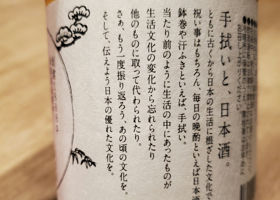 手拭いと、日本酒。
ともに古くから日本の生活に根ざした文化で
祝い事はもちろん、毎日の晩酌といえば日本酒
鉢巻や汗ふきといえば、手拭い。
当たり前のように生活の中にあったものが
生活文化の変化から忘れられたり
他のものに取って代わられたり。
さあ、もう一度振り返ろう、あの頃の文化を。
そして、伝えよう日本の優れた文化を。